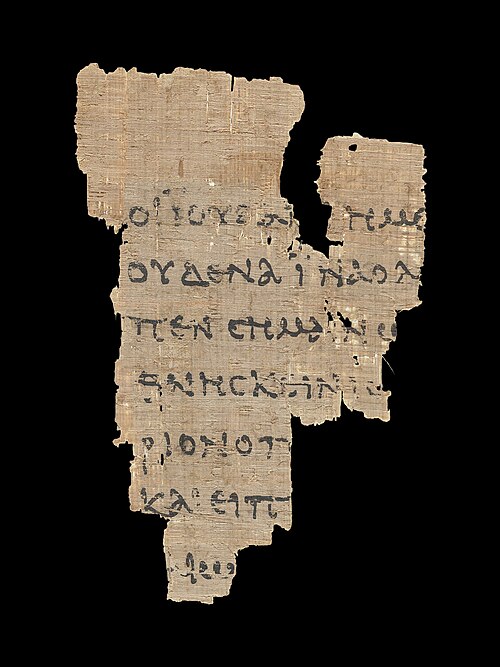 ΟΙ ΙΟΥΔΑΙ ΗΜΕ
ΟΥΔΕΝΑ ΙΝΑ Ο Λ
ΠΕΝ ΣΗΜΑΙΝΩ
ΘΝΗΣΚΕΙΝ ΙΣ
ΡΙΟΝ Ο Π
ΚΑΙ ΕΙΠ
ΜΑΙΩ